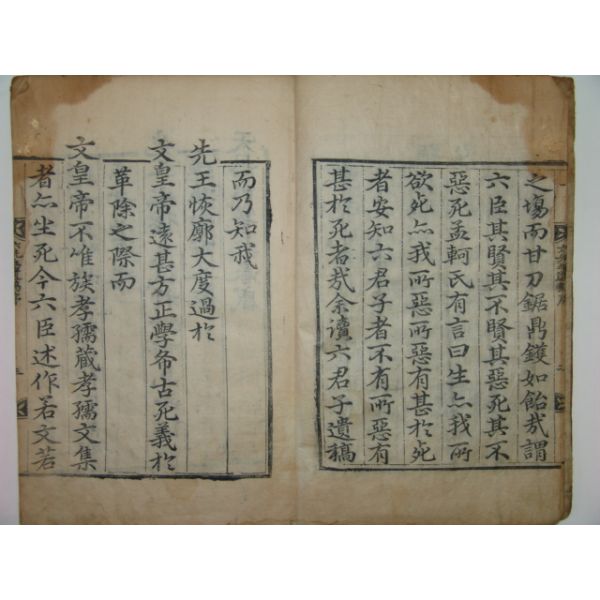 之場而甘刀鋸鼎鑊如飴㢤謂
六臣其賢其不賢其惡死其不
惡死孟軻氏有言曰生亦我所
欲死亦我所惡所惡有甚於死
者安知六君子者不有所惡有
甚於死者㢤余讀六君子遺稿
而乃知我
先王恢廓大度過於
文皇帝遠甚方正學希古死義於
革除之際而
文皇帝不唯族孝孺蔵孝孺文集
者亦坐死今六臣述作若文若